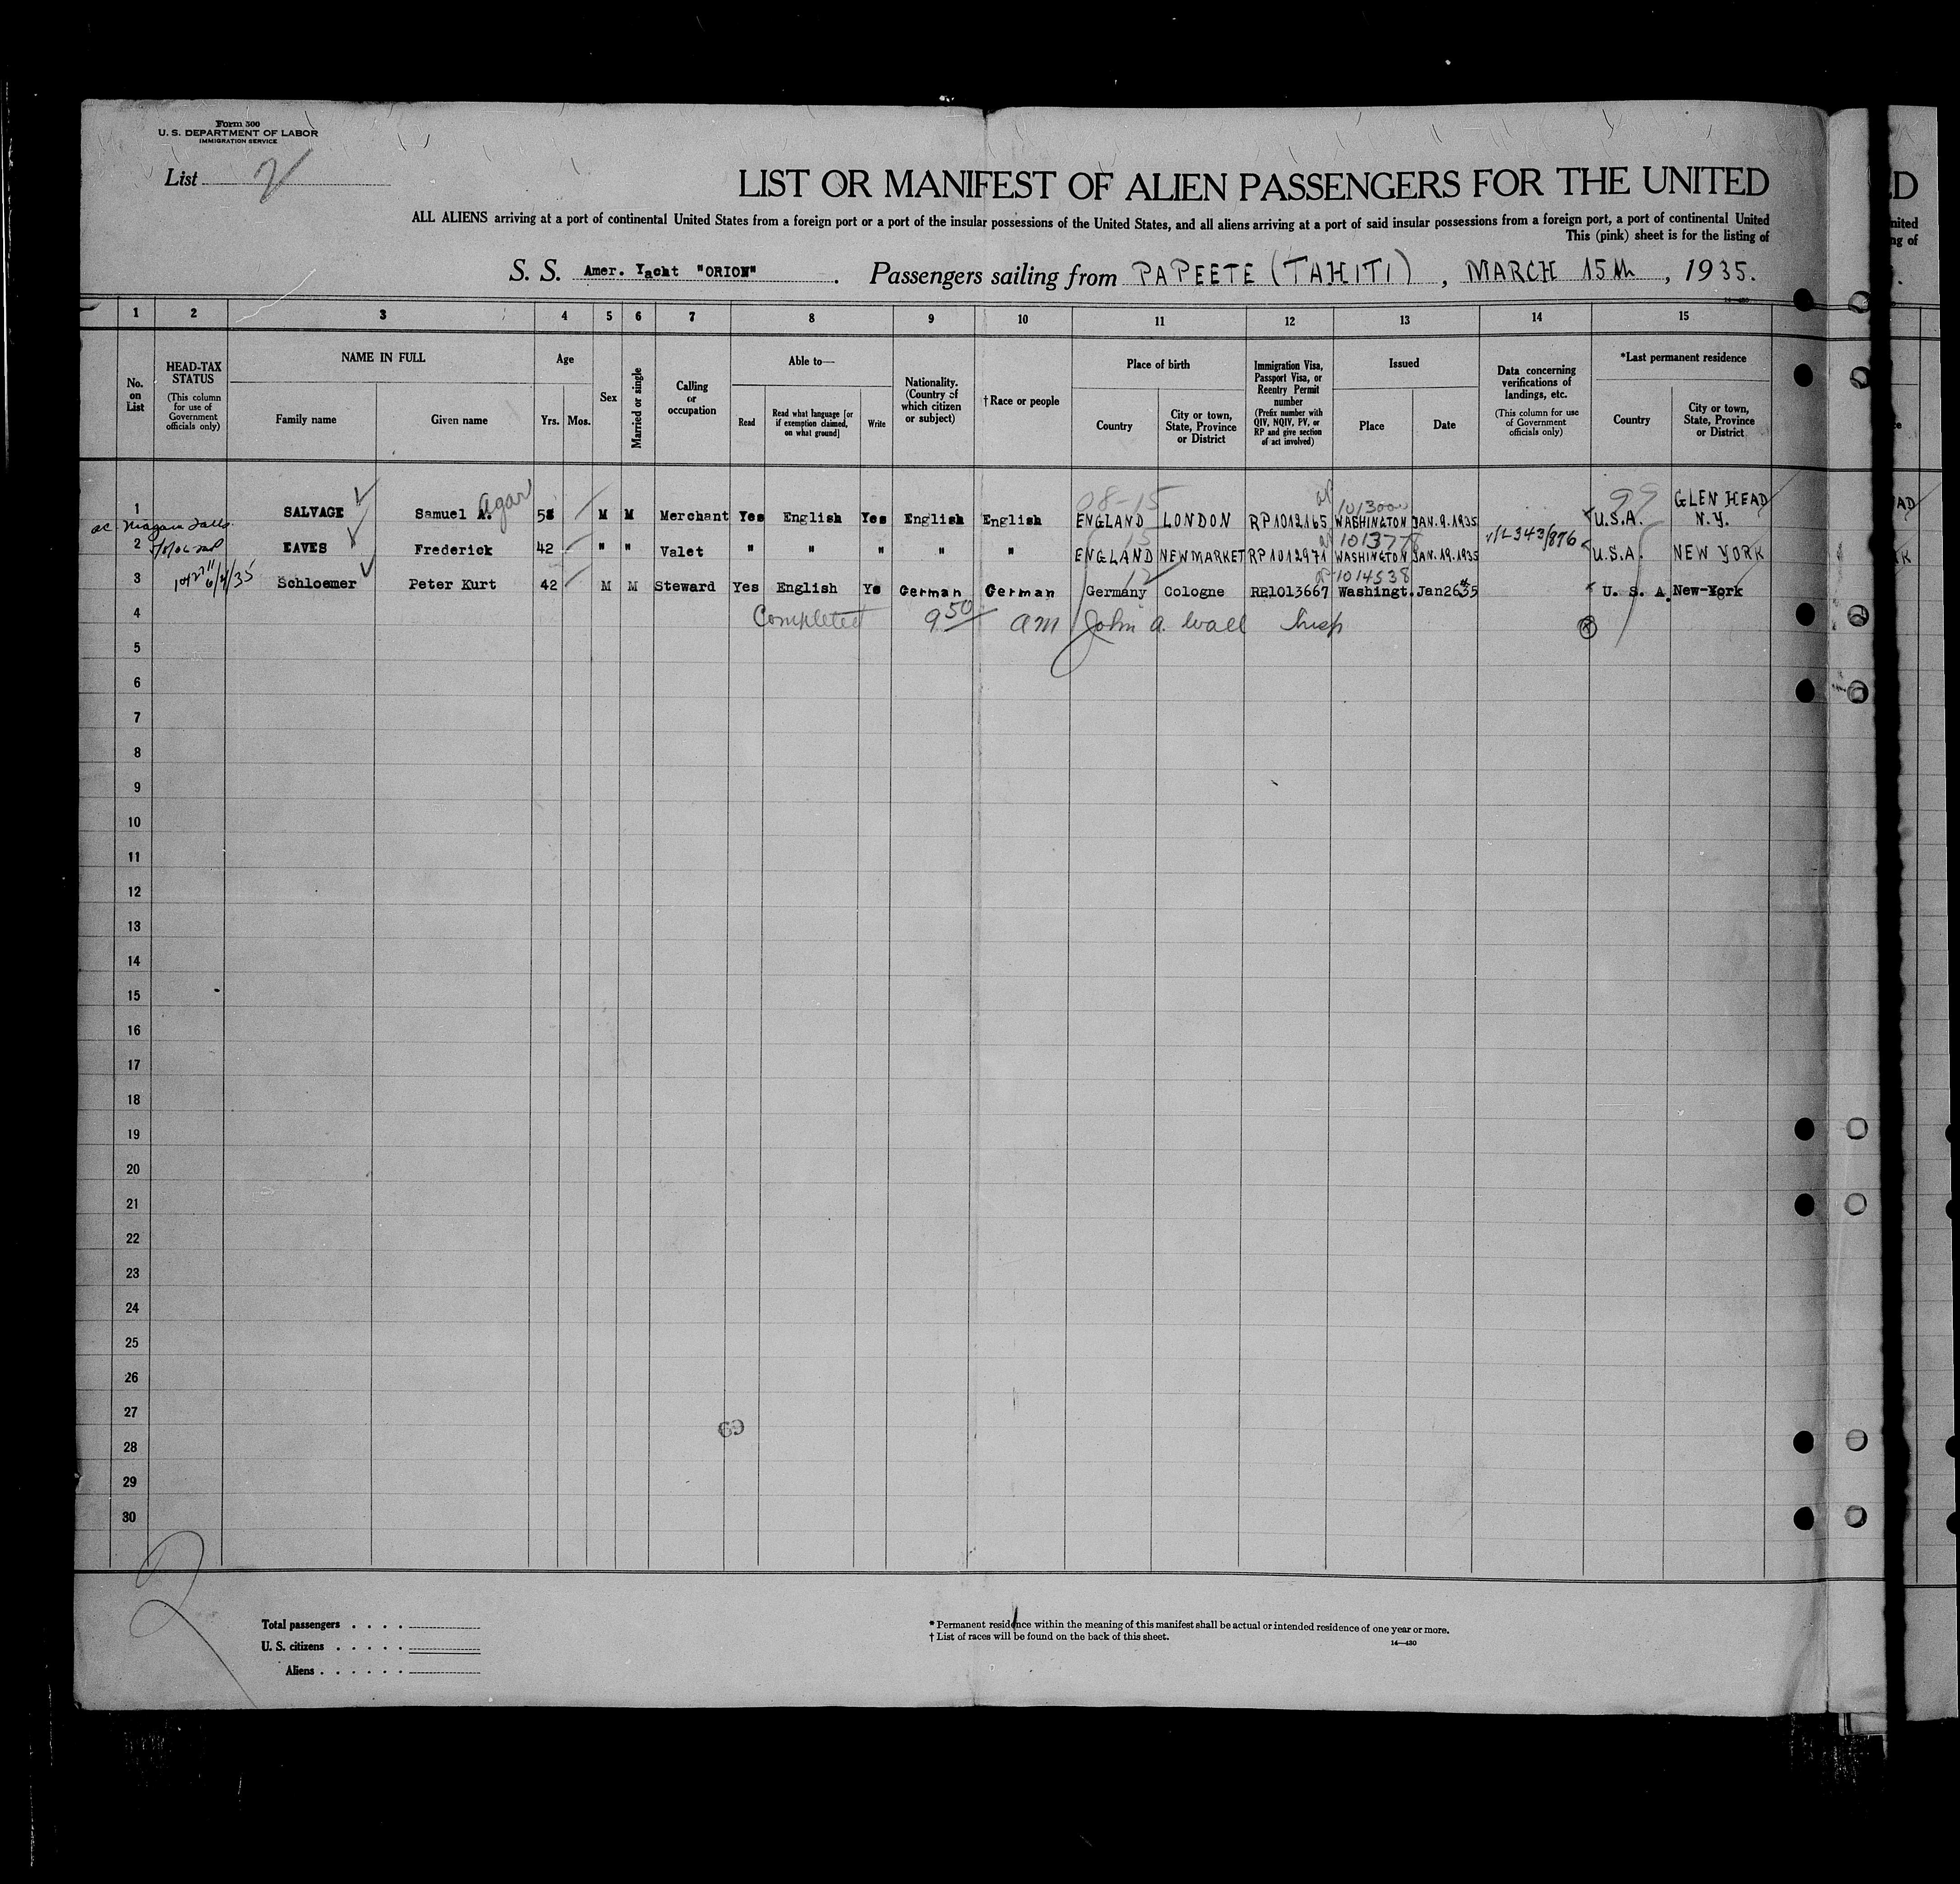 Form 500
U. S. DEPARTMENT OF LABOR
IMMIGRATION SERVICE
List 2
LIST OR MANIFEST OF ALIEN PASSENGERS FOR THE UNITED
ALL ALIENS arriving at a port of continental United States from a foreign port or a port of the insular possessions of the United States, and all aliens arriving at a port of said insular possessions from a foreign port, a port of continental United
This (pink) sheet is for the listing of
S. S. Amer. Yacht "ORION". Passengers sailing from PAPEETE (TAHITI), MARCH 15th, 1935.
1 2 3 4 5 6 7 8 9 10 11 12 13 14 15
No. on List
HEAD-TAX STATUS
(This column for use of Government officials only)
NAME IN FULL
Family name
Given name
Age
Yrs. Mos.
Sex
Married or single
Calling or occupation
Able to—
Read
Read what language [or if exemption claimed, on what ground]
Write
Nationality. (Country of which citizen or subject)
†Race or people
Place of birth
Country
City or town, State, Province or District
Immigration Visa, Passport Visa, or Reentry Permit number
(Prefix number with QIV, NQIV, PV, or RP and give section of act involved)
Issued
Place
Date
Data concerning verifications of landings, etc.
(This column for use of Government officials only)
*Last permanent residence
Country
City or town, State, Province or District
Agar 08-15 101300 99
1 SALVAGE Samuel A. 58 M M Merchant Yes English Yes English English ENGLAND LONDON RP1012165 WASHINGTON JAN.9.1935 U.S.A. GLEN HEAD N.Y.
Niagara Falls
15 101377
2 EAVES Frederick 42 " " Valet " " " " " ENGLAND NEWMARKET RP1012971 WASHINGTON JAN.19.1935 U.S.A. NEW YORK
12 1014538
3 Schloemer Peter Kurt 42 M M Steward Yes English Ye German German Germany Cologne RP1013667 Washingt. Jan26 35 U. S. A. New-York
4 Completed 9 50 am John A. Wall Insp
5
6
7
8
9
10
11
12
13
14
15
16
17
18
19
20
21
22
23
24
25
26
27
69
28
29
30
2
Total passengers . . . .
U. S. citizens . . . . .
Aliens . . . . . .
* Permanent residence within the meaning of this manifest shall be actual or intended residence of one year or more.
† List of races will be found on the back of this sheet.
14—430